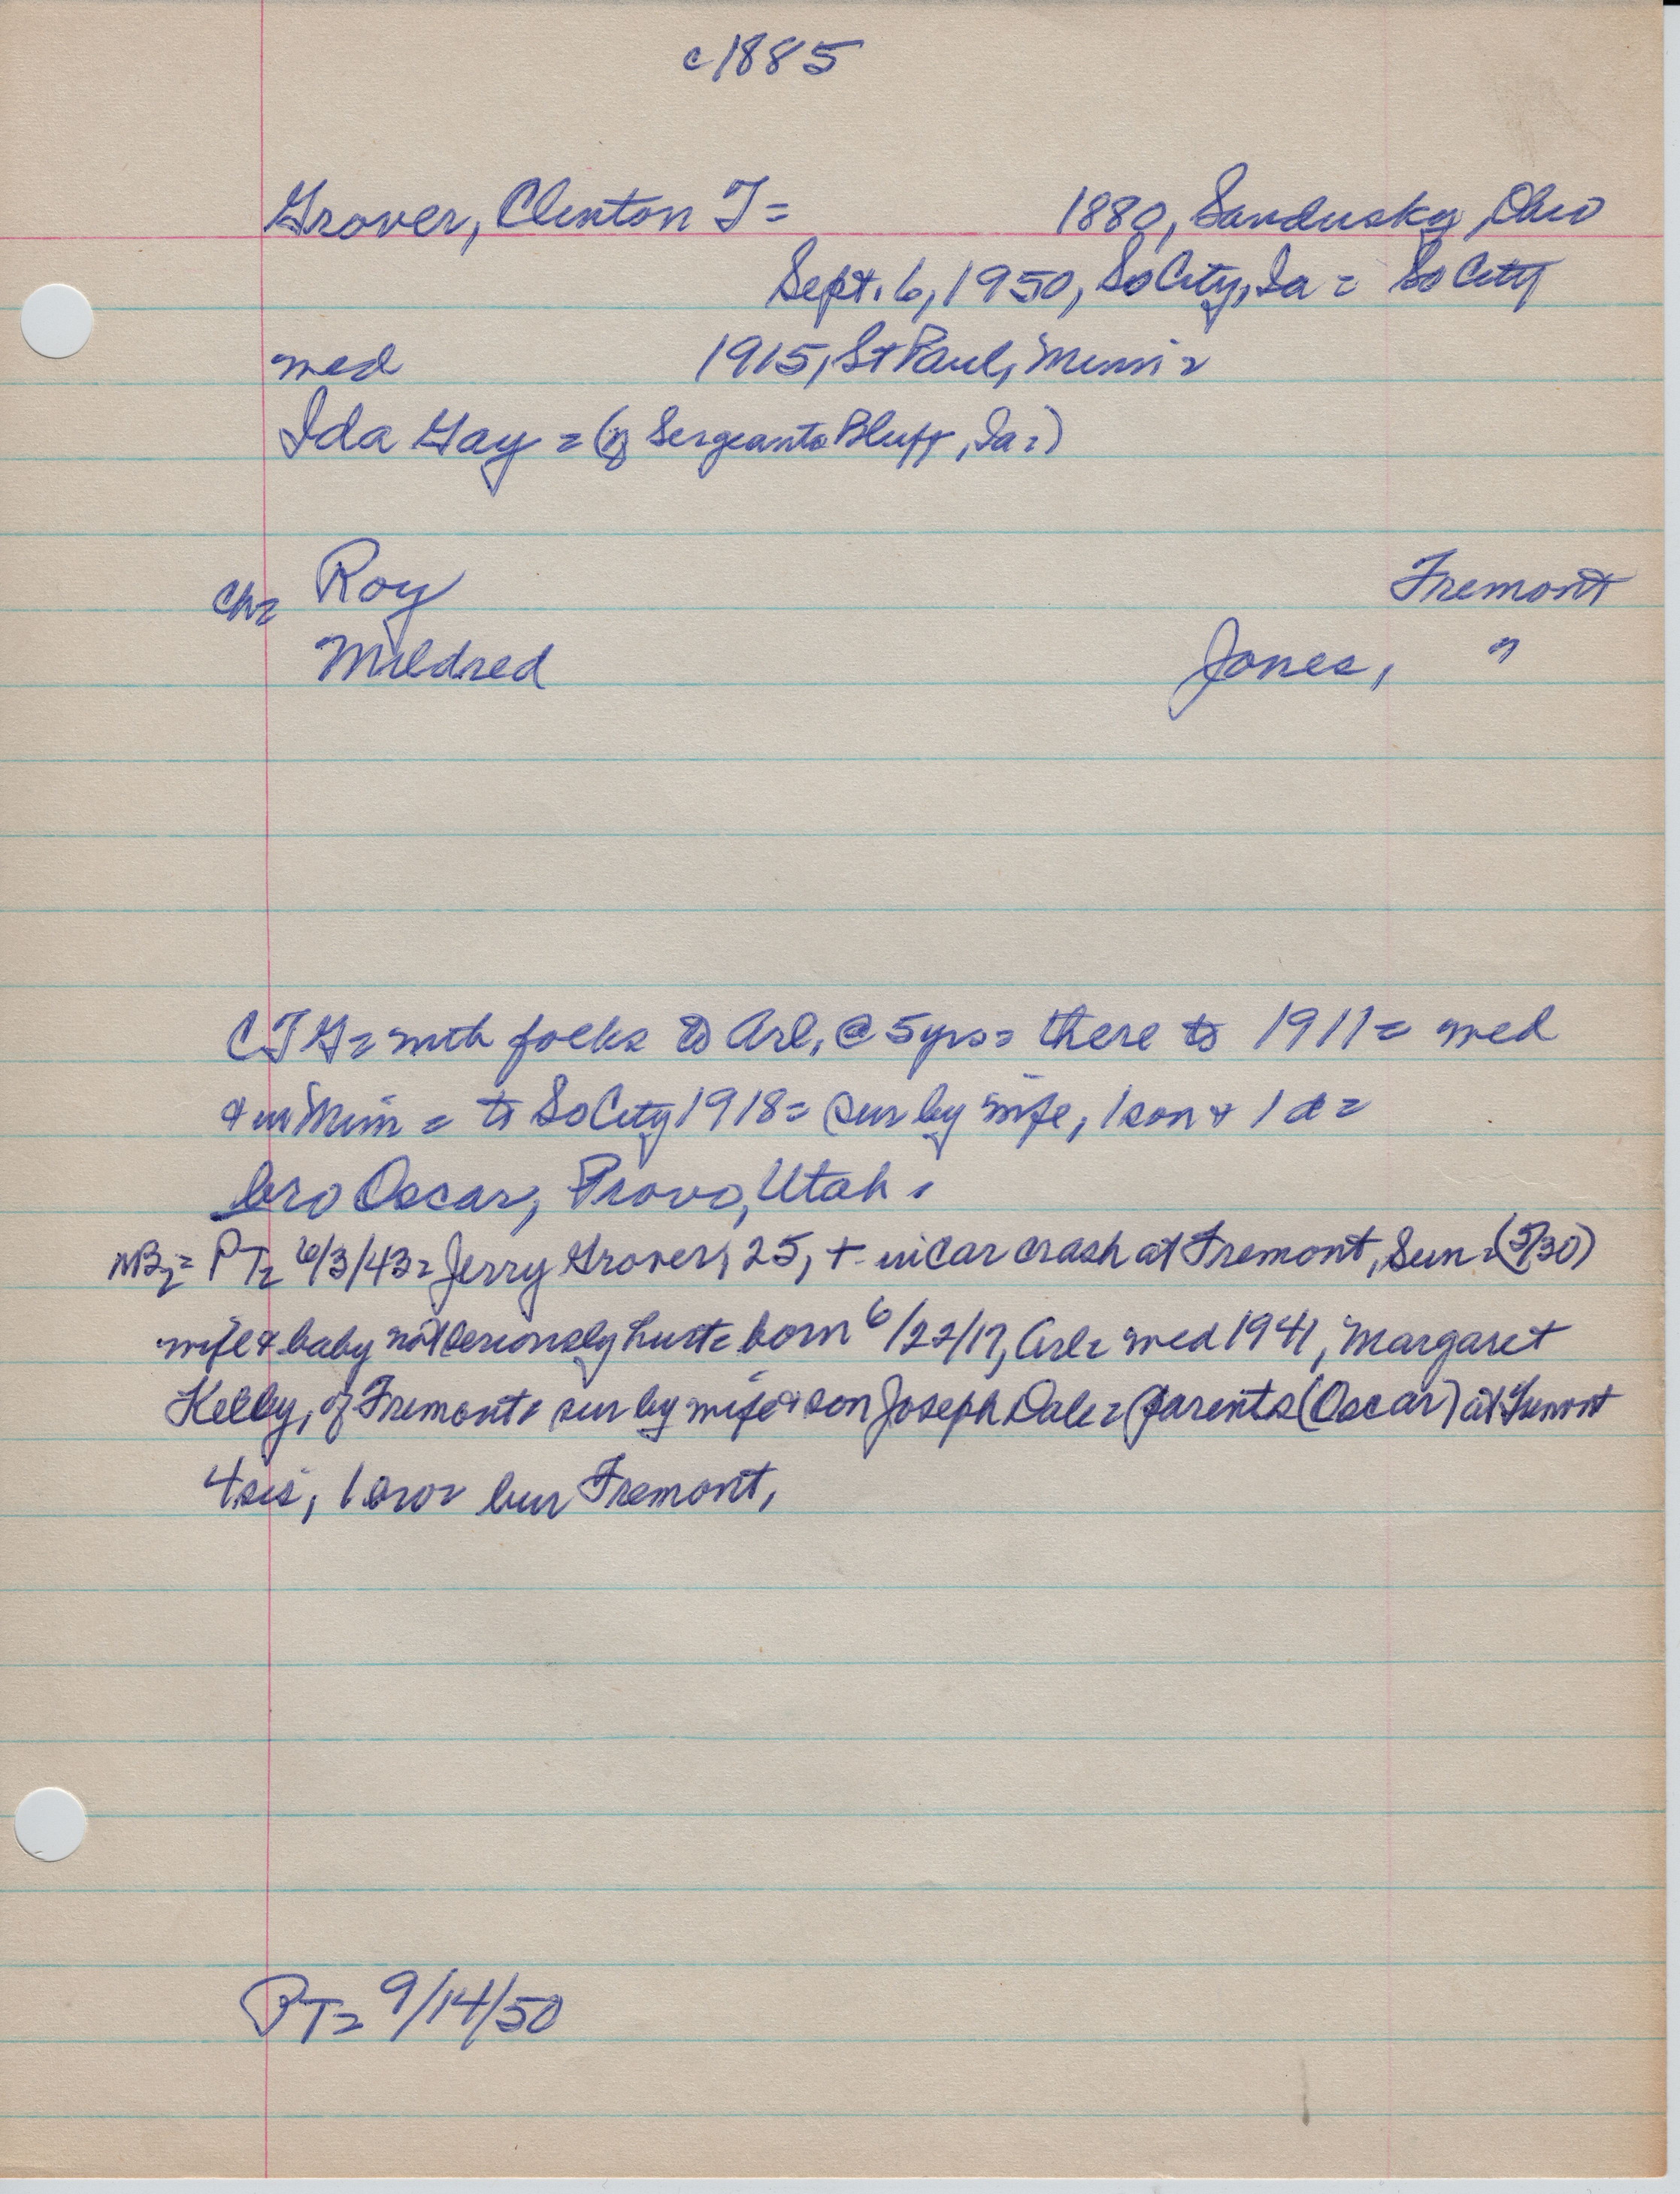 c1885
Grover, Clinton T= 1880, Sandusky, Ohio
Sept. 6, 1950, SoCity, Ia = SoCity
med 1915, St Paul, Minn =
Ida Gay = (of Sergeants Bluff, Ia =)
Ch= Roy Fremont
Mildred Jones, "
CTG= with folks to Arl, @ 5yrs= there to 1911= med
& in Minn = to SoCity 1918= sur by wife, 1 son & 1 d=
bro Oscar, Provo, Utah.
NB= PT= 6/3/43= Jerry Grover, 25, + in car crash at Fremont, Sun=(5/30)
wife & baby not seriously hurt= born 6/22/17, Arl= med 1941, Margaret
Kelby, of Fremont= sur by wife & son Joseph Dale= parents (Oscar) at Fremont
4 sis, 1 bro= bur Fremont,
PT= 9/14/50